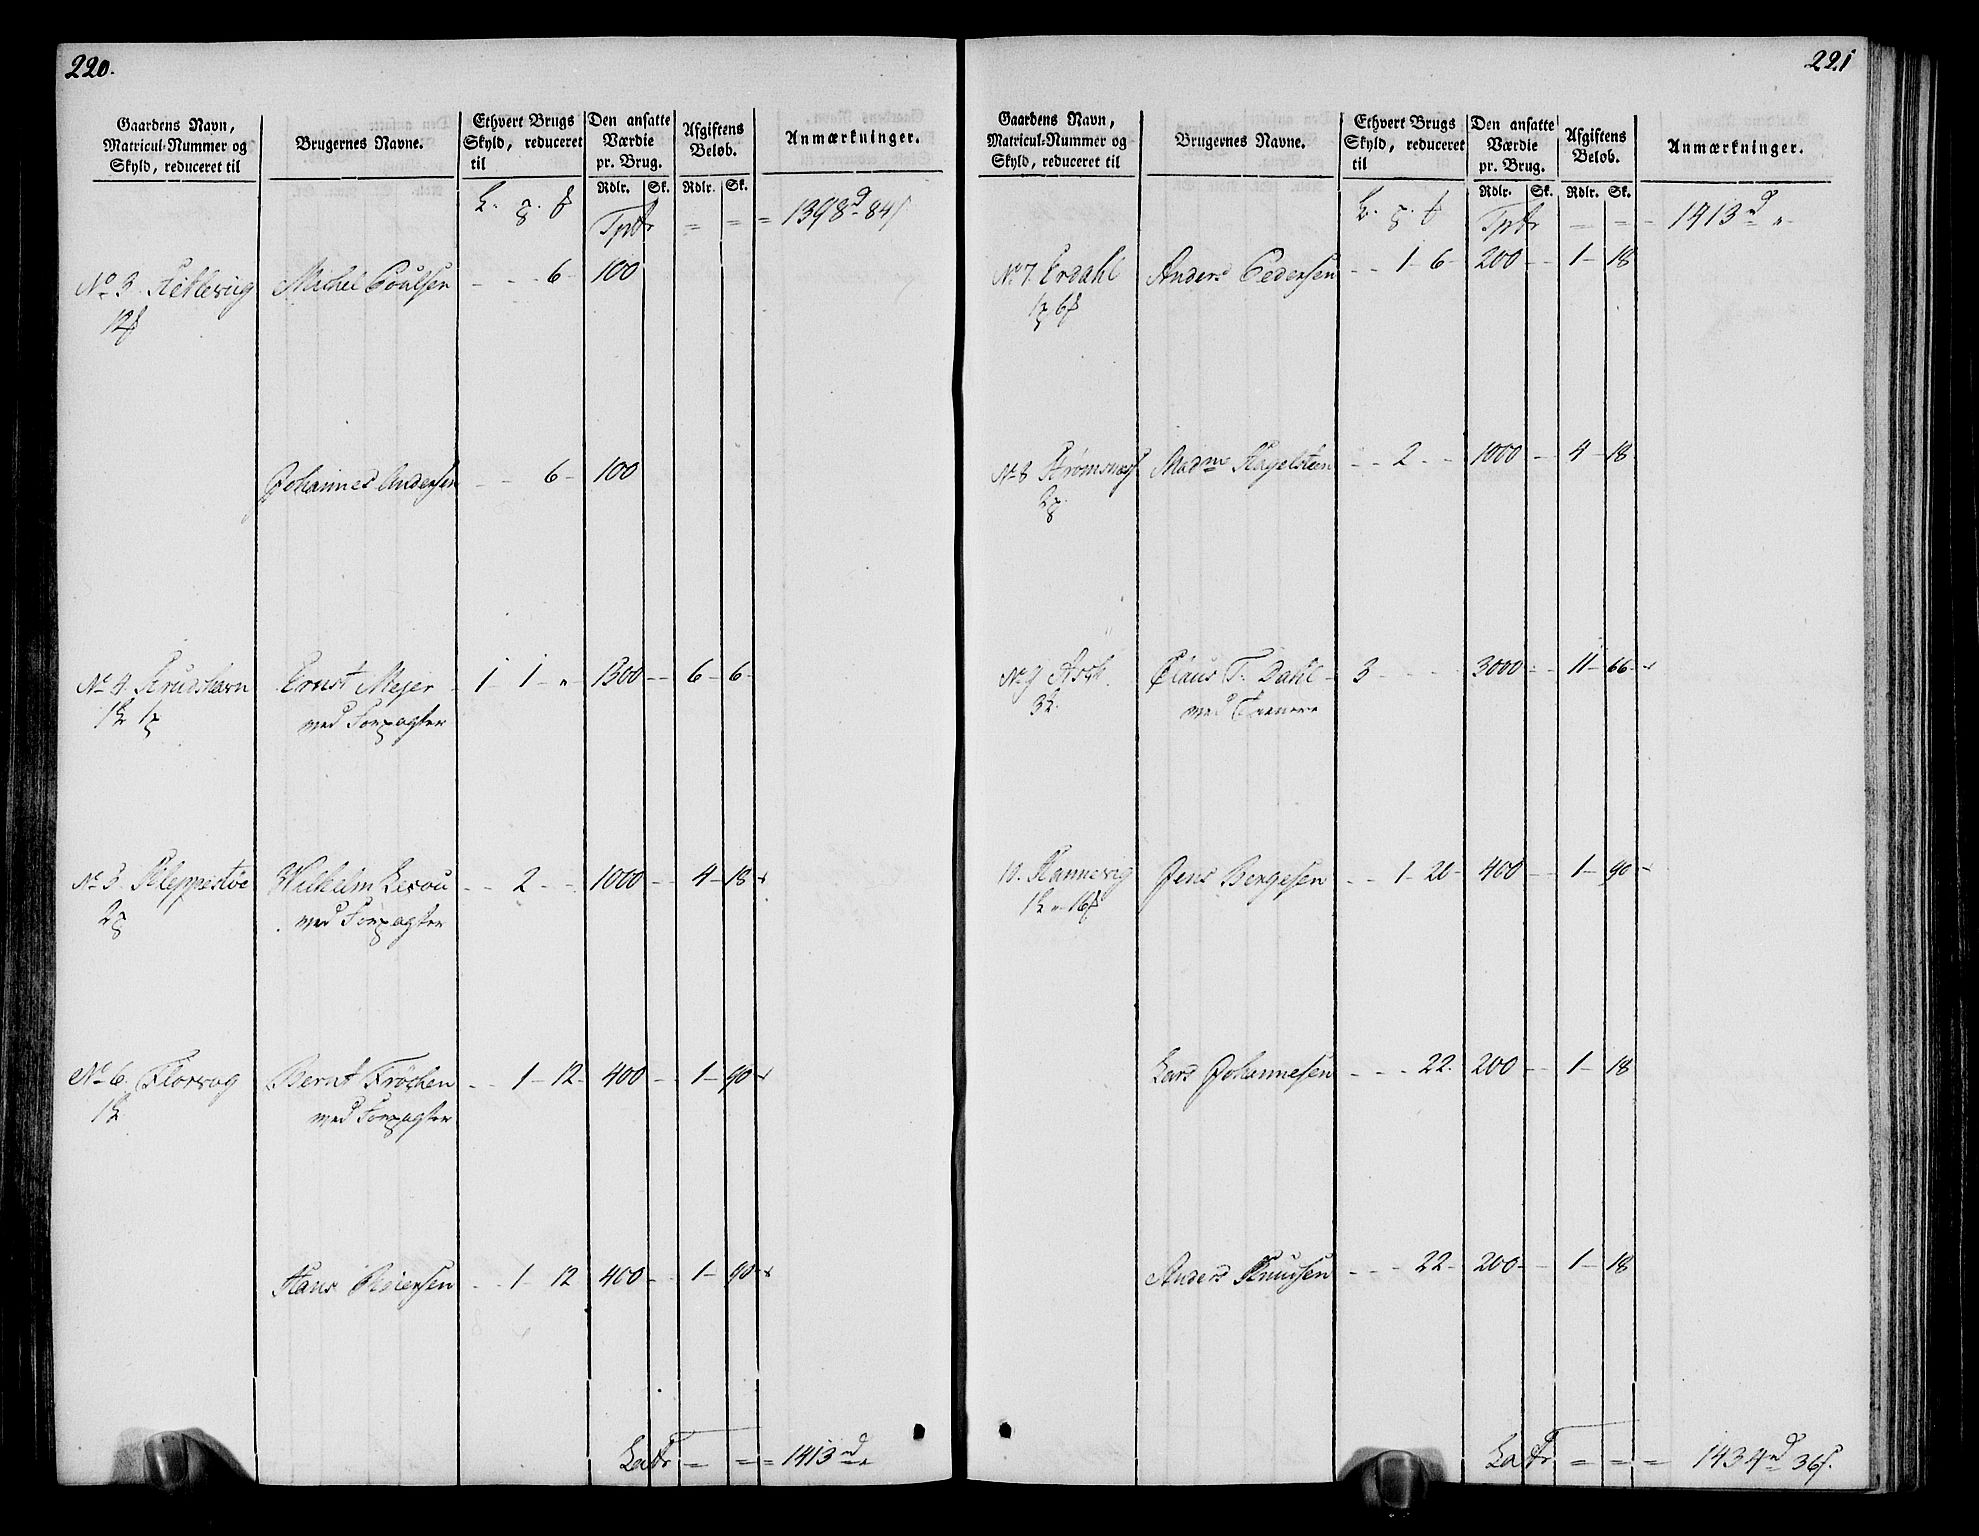 220.
Gaardens Navn, Matricul-Nummer og Skyld, reduceret til
Brugernes Navne.
Ethvert Brugs Skyld, reduceret til
Den ansatte Værdie pr. Brug.
Afgiftens Beløb.
Anmærkninger.
Rdlr. Sk. Rdlr. Sk.
Tpt = = = 1398 84
No 3 Kiblevig Michel Poulsen - - - 6 - 100
12
Johannes Andersen - - 6 - 100
No 4. Strudshavn Ernst Mejer 1 - 1 - " 1300 - - 6 - 6 -
1 1
med Forpagter
No 5. Kleppestøe Wilhelm - - 2 - - 1000 - - 4 - 18
2
med Forpagter
No 6. Florvog Bernt Fröchen - - 1 - 12 - 400 - - 1 - 90
1
med Forpagter
Hans Pedersen - - 1 - 12 400 - - 1 - 90
Latr = = = 1413
221
Gaardens Navn, Matricul-Nummer og Skyld, reduceret til
Brugernes Navne.
Ethvert Brugs Skyld, reduceret til
Den ansatte Værdie pr. Brug.
Afgiftens Beløb.
Anmærkninger.
Rdlr. Sk. Rdlr. Sk.
Tpt = = - 1413 "
No 7. Erdahl Anders Pedersen - - 1 - 6 - 200 - - 1 - 18
1 6
No 8 Strømsnæs Madme Hagelsteen - - 2 - - 1000 - - 4 - 18
2
No 9 Ask Claus T. Dahl - 3 - - - 3000 - - 11 - 66
3
med
10. Hannevig Jens Bergesen - - 1 - 20 - 400 - - 1 - 90
1 " 16
Lars Johannesen - - - 22. 200 - - 1 - 18
Anders Knudsen - - - 22 - 200 - - 1 - 18
Latr = = = 1434 36